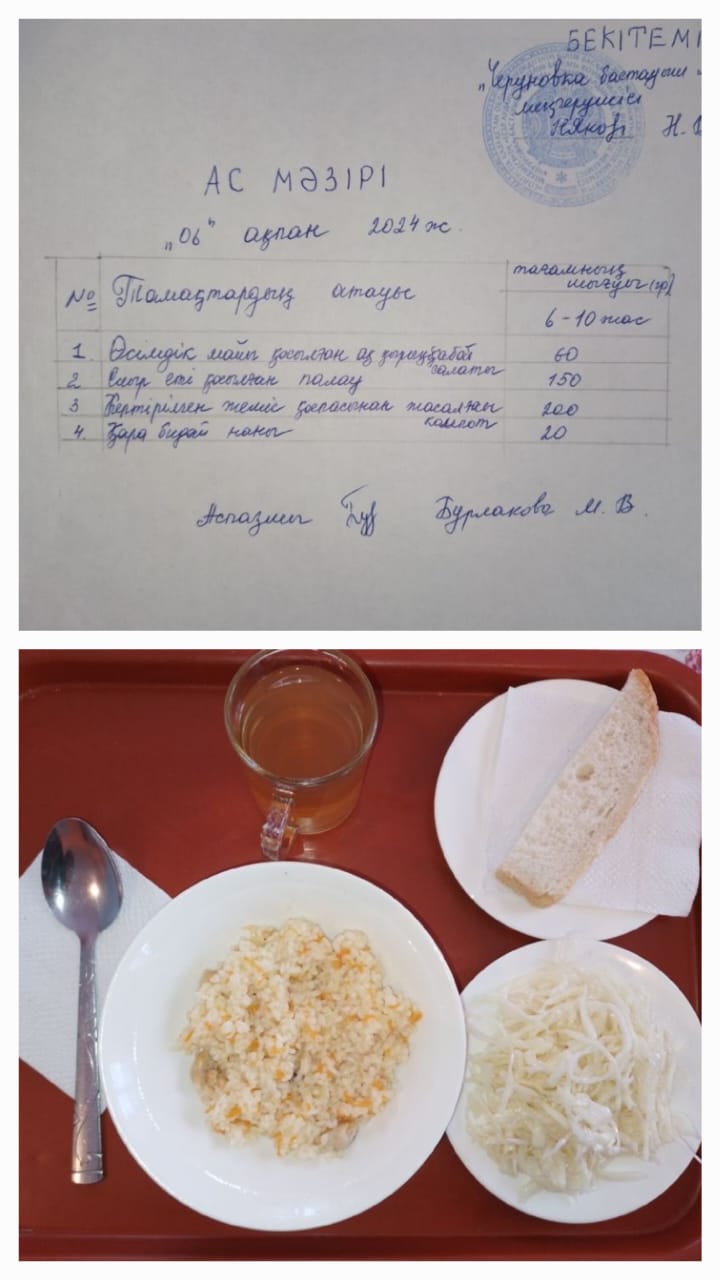 БЕКІТЕМІ
"Черуновка бастауыш
меңгерушісі
Н.
АС МӘЗІРІ
"06" ақпан 2024 ж.
№ Тамақтардың атауы
тағамның шығуы (гр)
6-10 жас
1. Өсімдік майы қосылған ақ қырыққабат салаты 60
2 Сиыр еті қосылған палау 150
3 Кептірілген жеміс қоспасынан жасалған компот 200
4. Қара бидай наны 20
Аспазшы Бурлакова М. В.